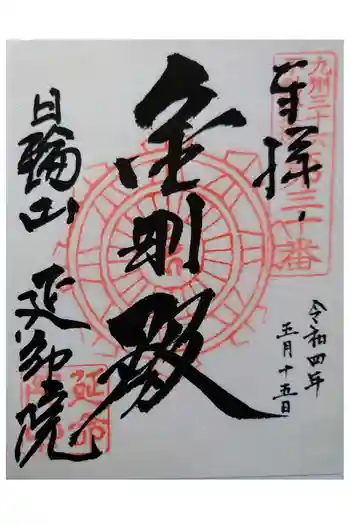 九州三十六
三十番
奉拝
令和四年
五月十五日
金剛殿
日輪山 延命院
延命